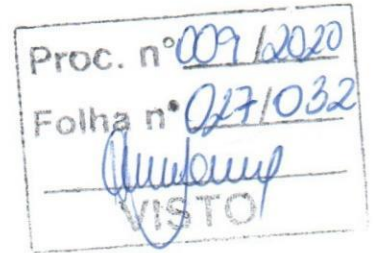 Proc. n° 009/2020
Folha n° 027/032
VISTO